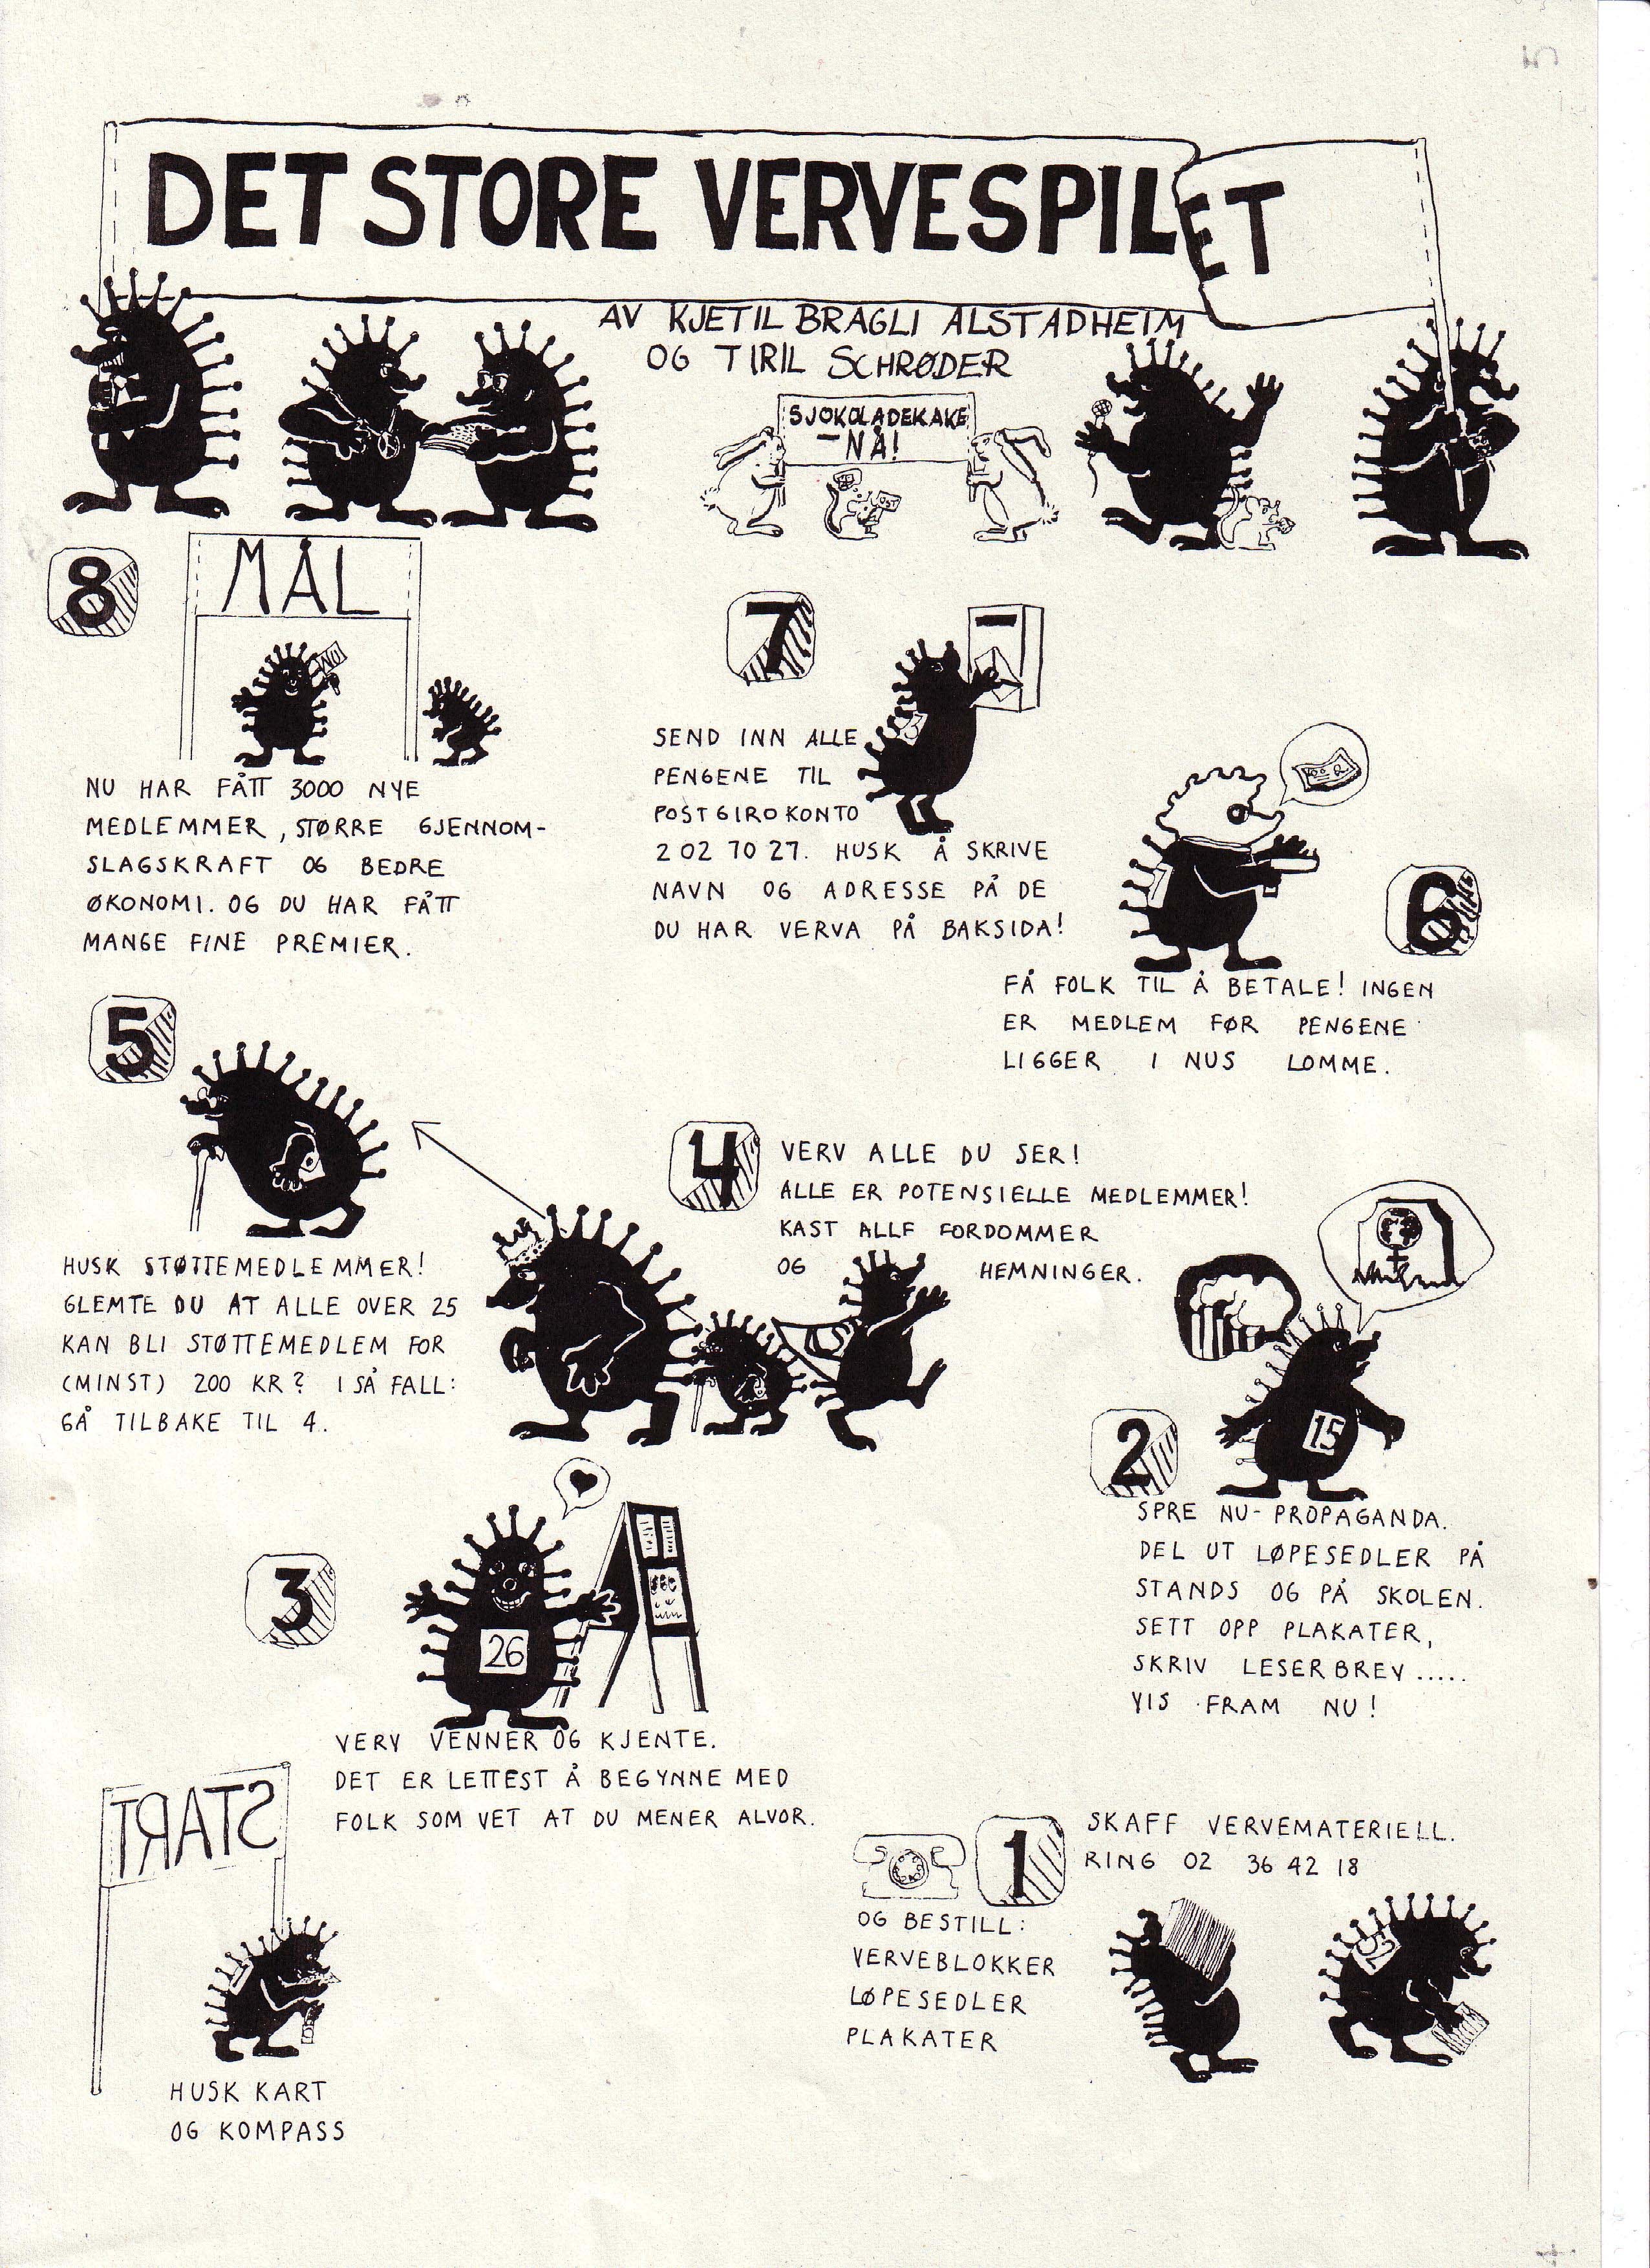 DET STORE VERVESPILET
AV KJETIL BRAGLI ALSTADHEIM
OG TIRIL SCHRØDER
SJOKOLADEKAKE
- NÅ!
8
MÅL
NU HAR FÅTT 3000 NYE
MEDLEMMER, STØRRE GJENNOM-
SLAGSKRAFT OG BEDRE
ØKONOMI. OG DU HAR FÅTT
MANGE FINE PREMIER.
7
SEND INN ALLE
PENGENE TIL
POSTGIROKONTO
2 02 70 27. HUSK Å SKRIVE
NAVN OG ADRESSE PÅ DE
DU HAR VERVA PÅ BAKSIDA!
6
FÅ FOLK TIL Å BETALE! INGEN
ER MEDLEM FØR PENGENE
LIGGER I NUS LOMME.
5
HUSK STØTTEMEDLEMMER!
GLEMTE DU AT ALLE OVER 25
KAN BLI STØTTEMEDLEM FOR
(MINST) 200 KR? I SÅ FALL:
GÅ TILBAKE TIL 4.
4
VERV ALLE DU SER!
ALLE ER POTENSIELLE MEDLEMMER!
KAST ALLE FORDOMMER
OG HEMNINGER.
2
15
SPRE NU-PROPAGANDA.
DEL UT LØPESEDLER PÅ
STANDS OG PÅ SKOLEN.
SETT OPP PLAKATER,
SKRIV LESERBREV.....
VIS FRAM NU!
3
26
VERV VENNER OG KJENTE.
DET ER LETTEST Å BEGYNNE MED
FOLK SOM VET AT DU MENER ALVOR.
START
HUSK KART
OG KOMPASS
1
SKAFF VERVEMATERIELL.
RING 02 36 42 18
OG BESTILL:
VERVEBLOKKER
LØPESEDLER
PLAKATER